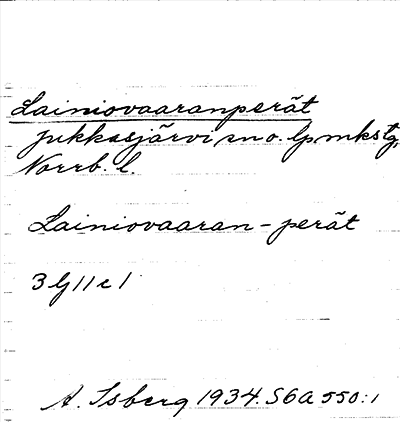 Lainiovaaranperät
Jukkasjärvi sn o. lpmkstg,
Norrb. l.
Lainiovaaran-perät
3 lj 11 c 1
A. Isberg 1934. S6A 550:1